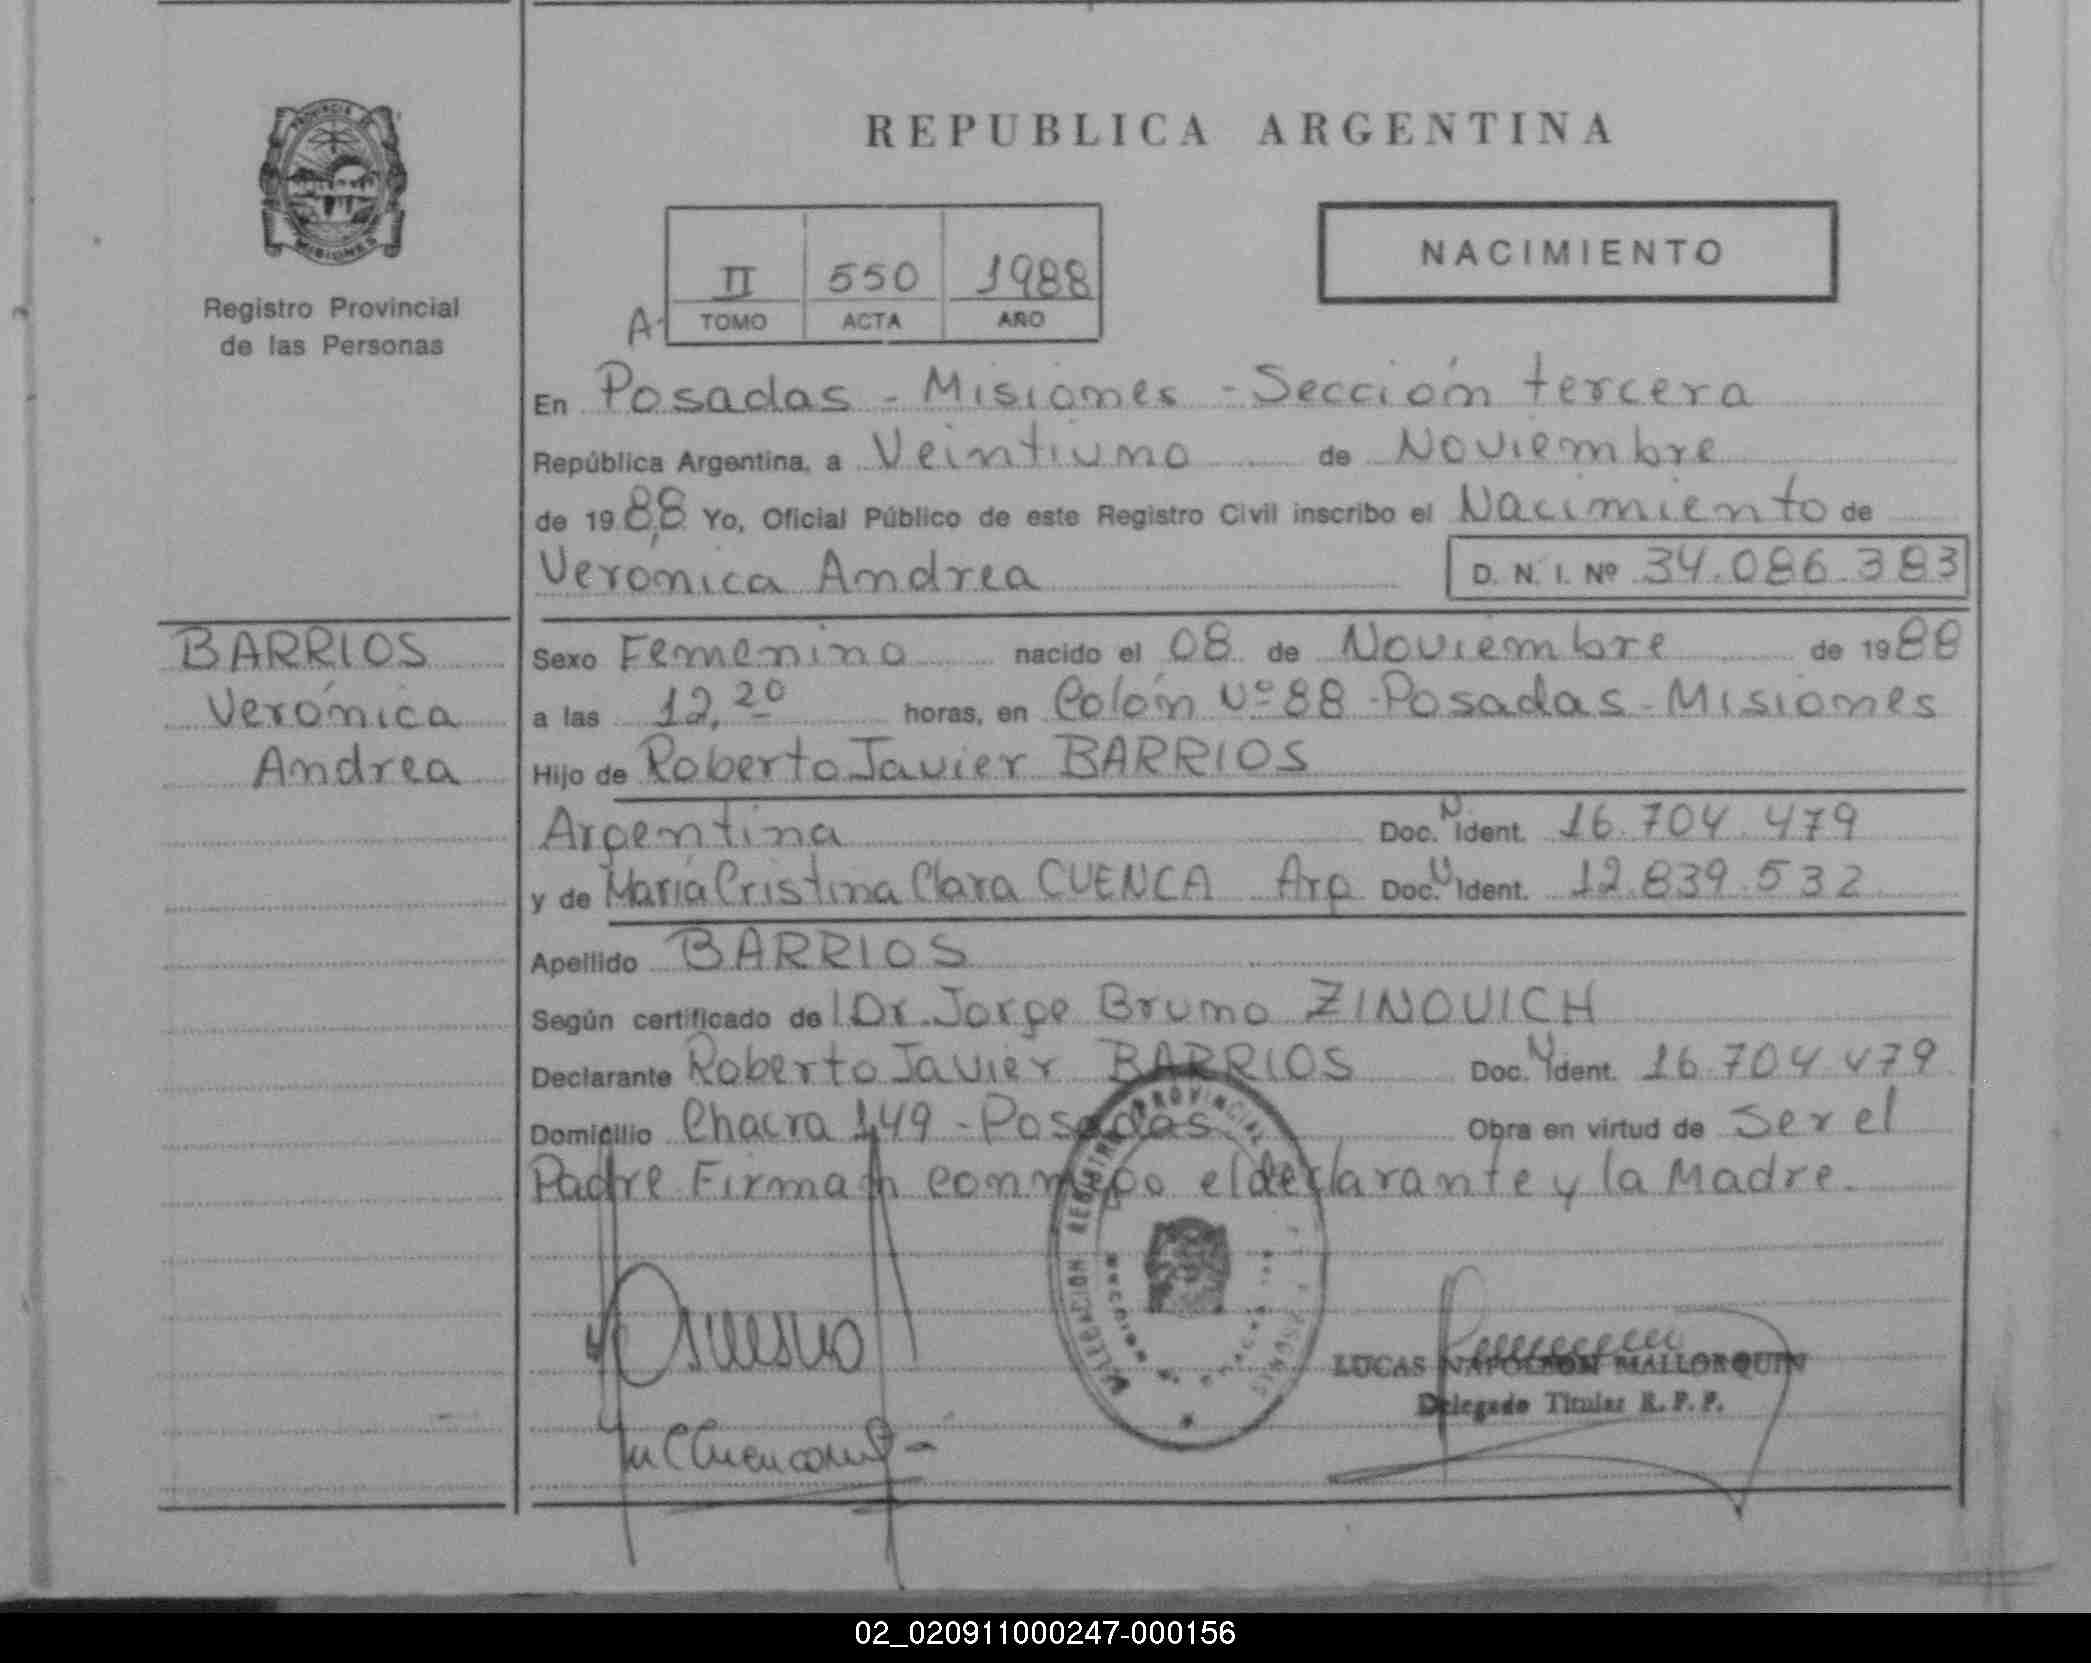 REPUBLICA ARGENTINA
PROVINCIA DE
MISIONES
Registro Provincial
de las Personas
NACIMIENTO
II 550 1988
A- TOMO ACTA AÑO
En Posadas - Misiones - Sección tercera
República Argentina, a Veintiuno de Noviembre
de 1988 Yo, Oficial Público de este Registro Civil inscribo el Nacimiento de
Verónica Andrea D. N. I. Nº 34.086.383
BARRIOS
Verónica
Andrea
Sexo Femenino nacido el 08 de Noviembre de 1988
a las 12,20 horas, en Colón Nº 88 - Posadas - Misiones
Hijo de Roberto Javier BARRIOS
Argentina Doc. N Ident. 16.704.479
y de María Cristina Clara CUENCA Arg Doc. N Ident. 12.839.532
Apellido BARRIOS
Según certificado del Dr. Jorge Bruno ZINOVICH
Declarante Roberto Javier BARRIOS Doc. N Ident. 16.704.479
Domicilio Chacra 149 - Posadas Obra en virtud de Ser el
Padre Firman conmigo el declarante y la Madre.
REGISTRO PROVINCIAL
LUCAS NAPOLEON MALLORQUIN
Delegado Titular R. P. P.
02_020911000247-000156